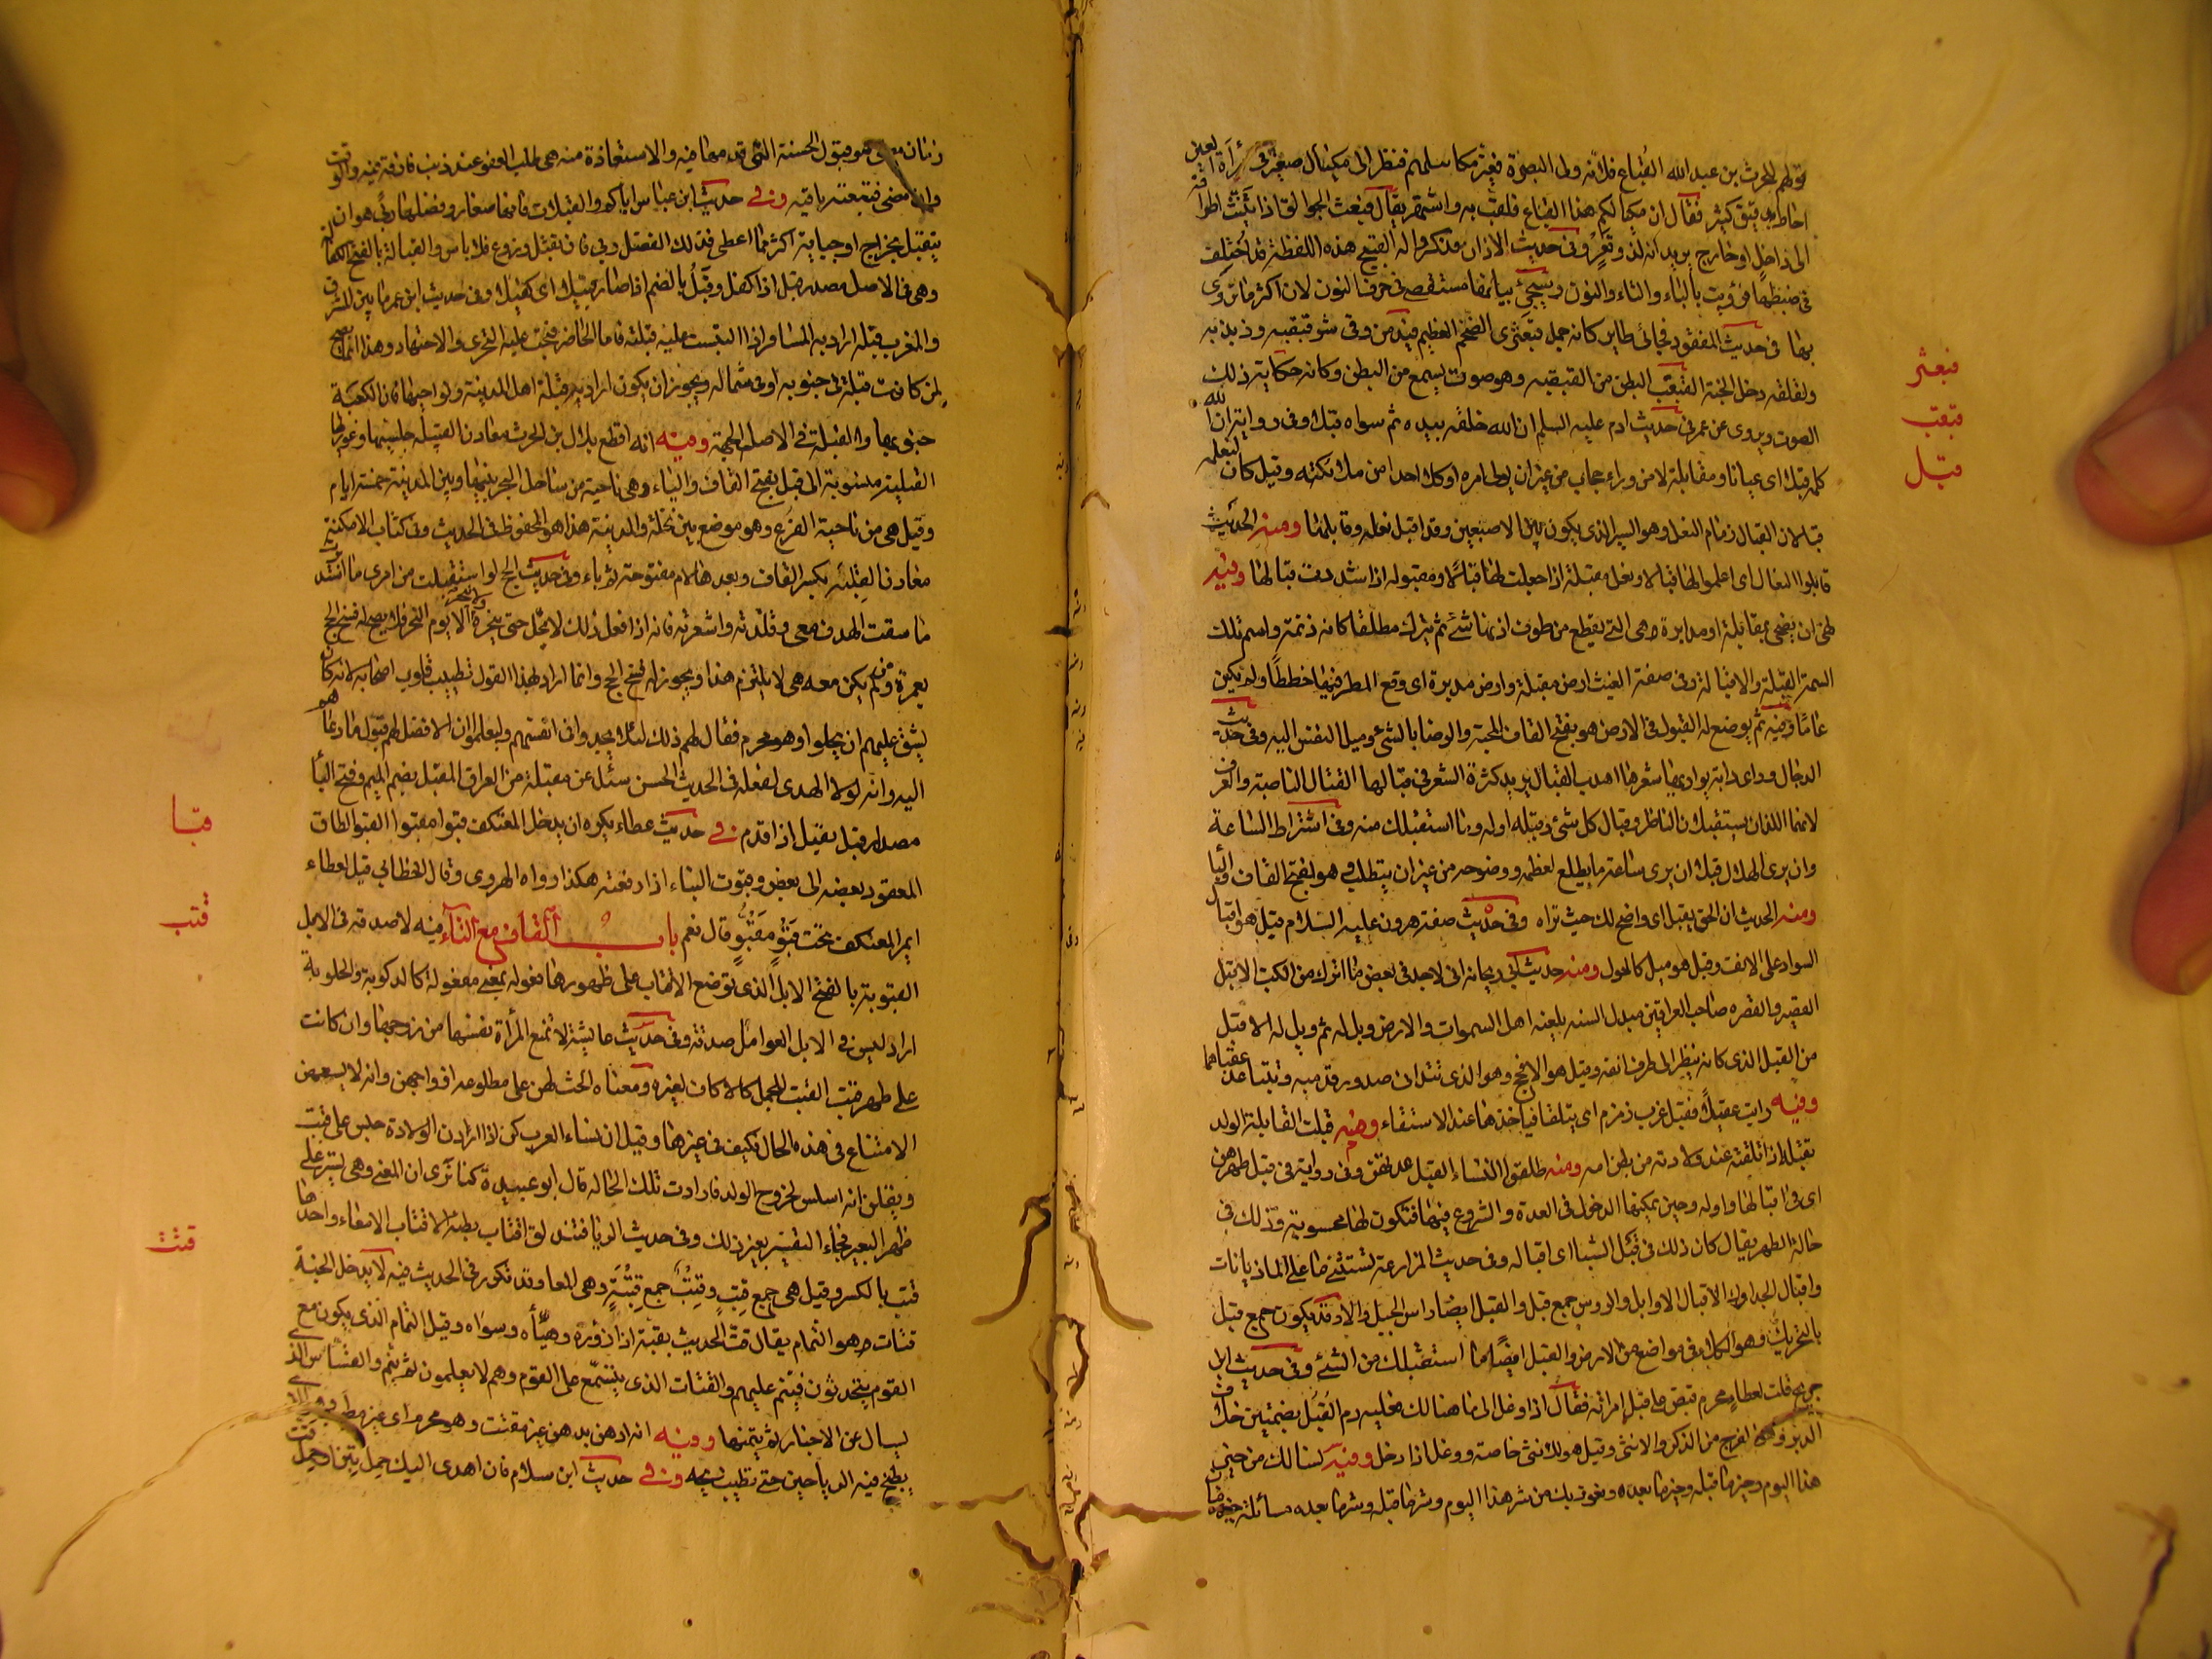 قولهم للحرث بن عبد الله القباع فلانه ولى البصرة فغير مكاييلهم فنظر الى مكيال صغير في مرآة العين
احاط بدقيق كثير فقال ان مكيالكم هذا القباع فلقب به واشتهر يقال قبعت الجوالق اذا ثنيت اطرافه
الى داخل او خارج يريد انه لذو قعر وفى حديث الاذان فذكروا له القبع هذه اللفظة قد اختلف
فى ضبطها فرويت بالباء والتاء والثاء والنون وسيجئ بيانها مستقصى فى حرف النون لان اكثر ما تروى
بها فى حديث المفقود فجائى طاير كانه جمل قبعثرى الضخم العظيم فيه من وقى شر قبقبه وذبذبه
ولقلقه دخل الجنة القبقب البطن من القبقبه وهو صوت يسمع من البطن وكانه حكاية ذلك
الصوت ويروى عن عمر فى حديث ادم عليه السلم ان الله خلقه بيده ثم سواه قبلا وفى رواية ان الله
كلمه قبلا اى عيانا ومقابلة لا من وراء حجاب من غيران يولى امره او كلامه احدا من ملائكته وقيل كان لنعله
قبالان القبال زمام النعل وهو السير الذى يكون بين الاصبعين وقد اقبل نعله وقابلها ومنه الحديث
قابلوا النعال اى اعملوا لها قبالا ونعل مقبلة اذا جعلت لها قبالا ومقبوله اذا شددت قبالها وفيه
نهى ان يضحى بمقابلة او مدابرة هى التى يقطع من طرف اذنها شئ ثم يترك معلقا كانه زنمة واسم تلك
السمة القبلة والاقبالة وفى صفة الغيث ارض مقبلة وارض مدبرة اى وقع المطر فيها خططا ولم يكن
عاما وفيه ثم يوضع له القبول فى الارض هو بفتح القاف المحبة والرضا بالشئ وميل النفس اليه وفى حديث
الدجال وراى دابة يواريها شعرها اهدب القبال يريد كثرة الشعر فى قبالها القبال الناصية والعرف
لانهما اللذان يستقبلان الناظر وقبال كل شئ وقبله اوله وما استقبلك منه وفى اشتراط الساعة
وان يرى الهلال قبلا ان يرى ساعة ما يطلع لعظمه ووضوحه من غيران يتطلب وهو بفتح القاف والبا
ومنه الحديث ان الحق يقبل اى واضح لك حيث تراه وفى حديث صفة هرون عليه السلام قيل هو اقبال
السواد على الانف وقيل هو ميل كالحول ومنه حديث ابى ريحانه انى لاجد فى بعض ما انزل من الكتب الاقبل
القصير القصره صاحب العراقين مبدل السنه يلعنه اهل السموات والارض ويل له ثم ويل له الاقبل
من القبل الذى كانه ينظر الى طرف انفه وقيل هو الافحج وهو الذى تتدانى صدور قدميه وتتباعد عقباهما
وفيه رايت عقيلا يقبل غرب زمزم اى يتلقاها فياخذها عند الاستقاء ومنه قبلت القابلة الولد
تقبله اذا تلقته عند ولادته من بطن امه ومنه طلقوا النساء لقبل عدتهن وفى رواية فى قبل طهرهن
اى فى اقبالها واوله وحين يمكنها الدخول فى العدة والشروع فيها فتكون لها محسوبة وذلك فى
حالة الطهر يقال كان ذلك فى قبل الشتا اى اقباله وفى حديث المزارعة تستثنى ما على الماذيانات
واقبال الجداول الاقبال الاوايل والروس جمع قبل والقبل ايضا راس الجبل والاكمة وقد يكون جمع قبل
بالتحريك وهو الكلا فى مواضع من الارض والقبل ايضا ما استقبلك من الشئ وفى حديث ابن
جريج قلت لعطاء محرم قبض على قبل امراته فقال اذا وغل الى ما هنالك فعليه دم القبل بضمتين خلاف
الدبر وهو الفرج من الذكر والانثى وقيل هو للانثى خاصة ووغل اذا دخل وفيه نسالك من خير
هذا اليوم وخير ما قبله وخير ما بعده ونعوذ بك من شر هذا اليوم وشر ما قبله وشر ما بعده مسائلة خير
قبعثر
قبقب
قبل
زمان مضى هو قبول الحسنة التى قدمها فيه والاستعاذة منه هى طلب العفو عند ذنب قارفه فيه والوقت
وان مضى فتبعته باقيه وفى حديث ابن عباس اياكم والقبالات فانها صغار وفضلها ربى هو ان
يتقبل بخراج او جباية اكثر مما اعطى فذلك الفضل ربى فان تقبل وزرع فلا باس والقبالة بالفتح الكفالة
وهى فى الاصل مصدر قبل اذا كفل وقبل بالضم اذا صار قبيلا اى كفيلا وفى حديث ابن عمر ما بين المشرق
والمغرب قبلة اراد به المسافر اذا التبست عليه قبلته فاما الحاضر فيجب عليه التحرى والاجتهاد وهذا انما يصح
لمن كانت قبلته فى جنوبه او فى شماله ويجوز ان يكون اراد به قبلة اهل المدينة ونواحيها فان الكعبة
جنوبها والقبلة فى الاصل الجهة وفيه انه اقطع بلال بن الحرث معادن القبلية جلسيها وغوريها
القبلية منسوبة الى قبل بفتح القاف والباء وهى ناحية من ساحل البحر بينها وبين المدينة خمسة ايام
وقيل هى من ناحية الفرع وهو موضع بين نخلة والمدينة هذا هو المحفوظ فى الحديث وفى كتاب الامكنة
معادن القلبة بكسر القاف وبعدها لام مفتوحة ثم باء وفى حديث الحج لو استقبلت من امرى ما استدبرت
ما سقت الهدى معى وقلدته واشعرته فانه اذا فعل ذلك لا يحل حتى ينحر ولا ينحر الا يوم النحر فلا يصح له فسخ الحج
بعمرة ومن لم يكن معه هدى لا يلتزم هذا ويجوز له فسخ الحج وانما اراد بهذا القول تطييب قلوب اصحابه لانه كان
يشق عليهم ان يحلوا وهو محرم فقال لهم ذلك لئلا يجدوا فى انفسهم وليعلموا ان الافضل لهم قبول ما دعاهم
اليه وانه لولا الهدى لفعله فى الحديث الحسن سئل عن مقبله من العراق المقبل بضم الميم وفتح البا
مصدر اقبل يقبل اذا قدم فى حديث عطاء يكره ان يدخل المعتكف قبوا مقبوا القبو الطاق
المعقود بعضه الى بعض وقبوت البناء اذا رفعته هكذا رواه الهروى وقال الخطابى قيل لعطاء
ايمر المعتكف تحت قبو مقبو قال نعم باب القاف مع التاء فيه لا صدقة فى الابل
القتوبة بالفتح الابل الذى توضع الاقتاب على ظهورها فعوله بمعنى مفعولة كالركوبة والحلوبة
اراد ليس فى الابل العوامل صدقة وفى حديث عايشة لا تمنع المرأة نفسها من زوجها وان كانت
على ظهر قتب القتب للجمل كالاكاف لغيره ومعناه الحث لهن على مطاوعة ازواجهن وانه لا يسعهن
الامتناع فى هذه الحال فكيف فى غيرها وقيل ان نساء العرب كن اذا اردن الولادة جلسن على قتب
ويقلن انه اسلس لخروج الولد فارادت تلك الحالة قال ابو عبيدة كنا نرى ان المعنى وهى تسير على
ظهر البعير فجاء التفسير بغير ذلك وفى حديث الربا فتندلق اقتاب بطنه الاقتاب الامعاء واحدها
قتب بالكسر وقيل هى جمع قتب وقتب جمع قتبة وهى المعا وقد تكرر فى الحديث فيه لا يدخل الجنة
قتات هو النمام يقال قت الحديث يقته اذا زوره وهيأه وسواه وقيل النمام الذى يكون مع
القوم يتحدثون فينم عليهم والقتات الذى يتسمع على القوم وهم لا يعلمون ثم ينم والقساس الذى
يسال عن الاخبار ثم ينمها وفيه انه ادهن بدهن غير مقتت وهو محرم اى غير مطيب وهو الذى
يطبخ فيه الرياحين حتى تطيب ريحه وفى حديث ابن سلام فان اهدى اليك حمل تبن او حمل قت
قبا
قتب
قتت